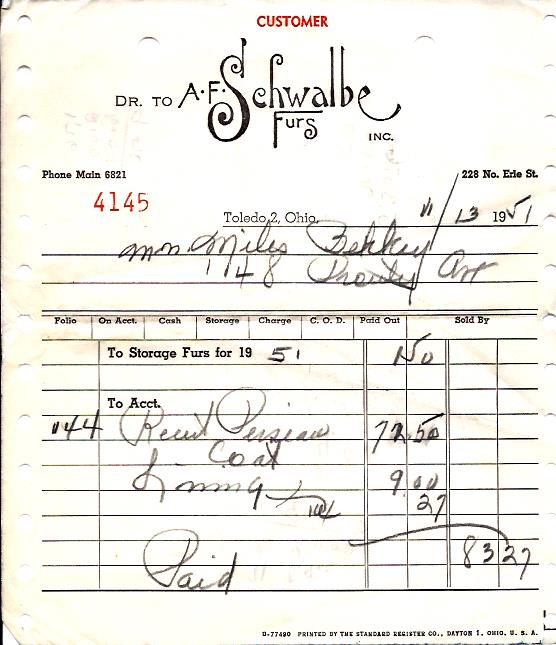 CUSTOMER
DR. TO A·F· Schwalbe
Furs
INC.
Phone Main 6821 228 No. Erie St.
4145
Toledo 2, Ohio, 11/13 1951
Mrs. Miles
1148 Prouty Ave
Folio On Acct. Cash Storage Charge C. O. D. Paid Out Sold By
To Storage Furs for 19 51 1 50
To Acct.
1144 Recut Persian 72.50
Coat
Lining 9.00
tax 27
83 27
Paid
U-77490 PRINTED BY THE STANDARD REGISTER CO., DAYTON 1, OHIO, U. S. A.